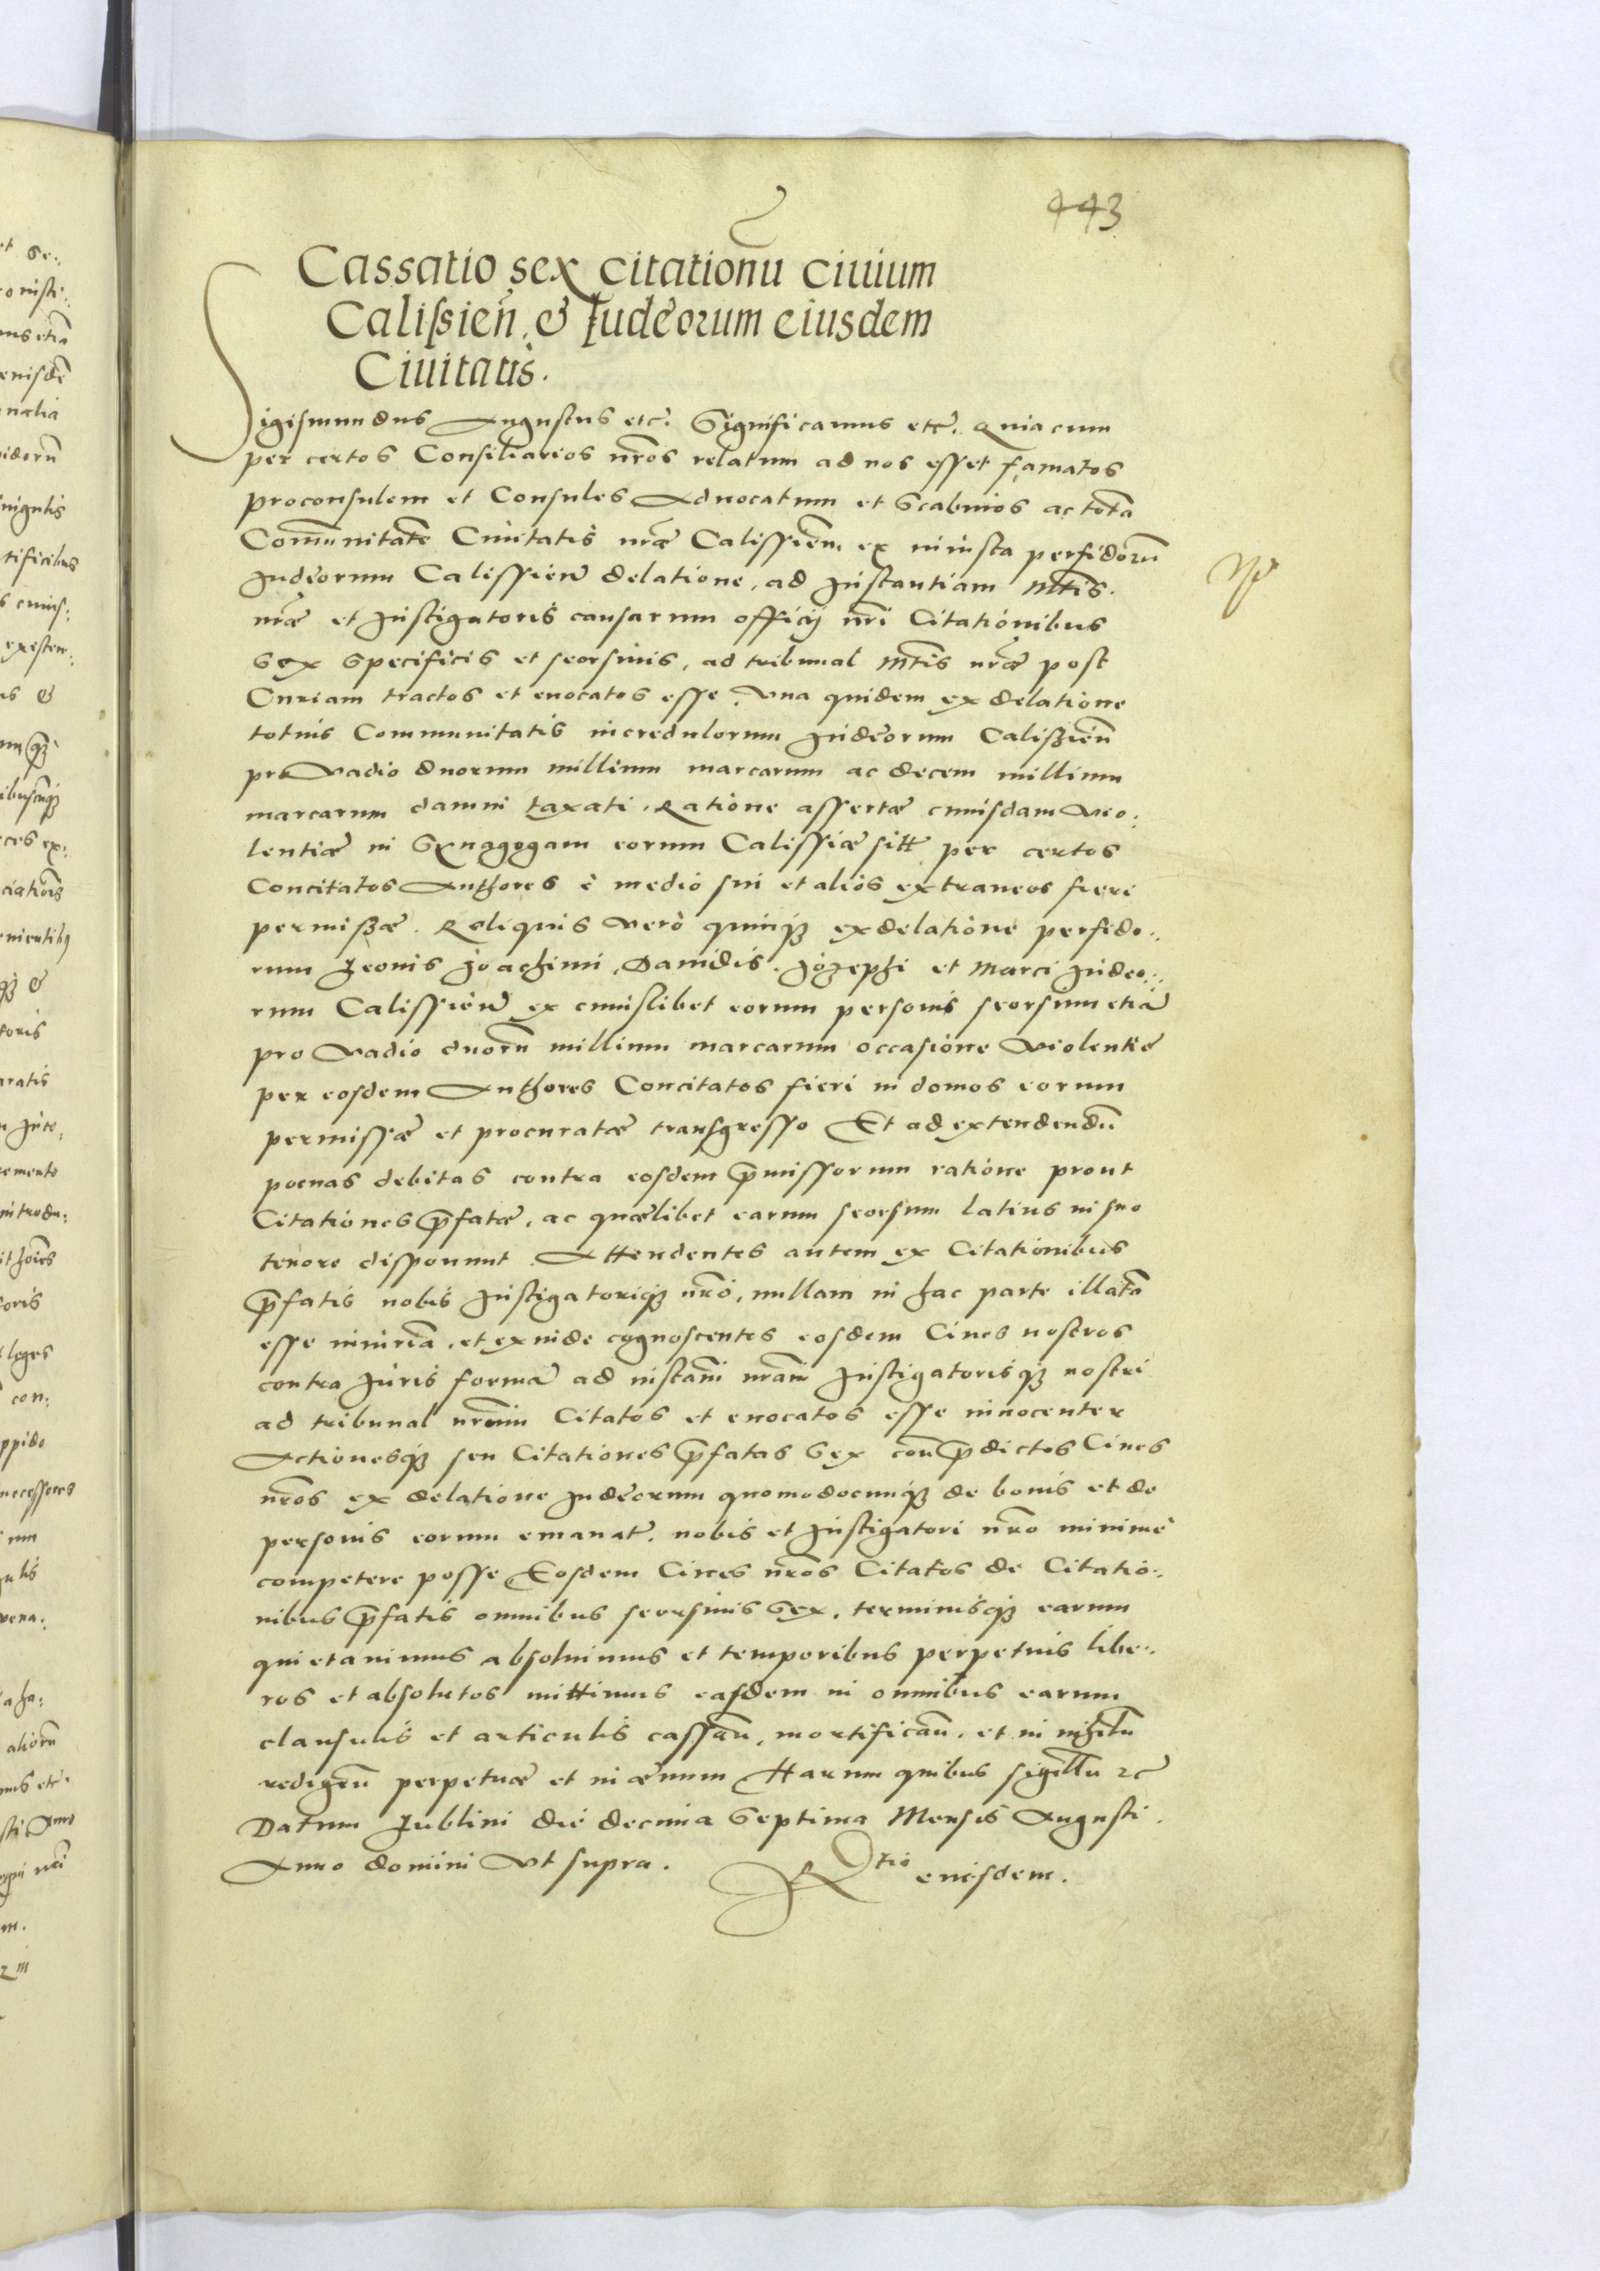 443
Cassatio sex citationū ciuium
Calissień. & Iudeorum eiusdem
Ciuitatis.
Sigismundus Augustus etc̃. Significamus etc̃. Quia cum
per certos Consiliarios nr̃os relatum ad nos esset famatos
proconsulem et Consules Aduocatum et Scabinos ac totã
Com̃unitatẽ Ciuitatis nr̃ae Calissieñ. ex iniusta perfidorũ
Iudeorum Calissieñ delatione, ad Instantiam Mtis.
nr̃ae et Instigatoris causarum officij nr̃i Citationibus
Sex Specificis et seorsiuis, ad tribunal Mtis nr̃ae post
Curiam tractos et euocatos esse, Vna quidem ex delatione
totius Communitatis incredulorum Iudeorum Calissieñ
pro Vadio duorum millium marcarum ac decem millium
marcarum damni taxati. Ratione assertae cuiusdam Vio:
lentiae in Synagogam eorum Calissiae sitt̃ per certos
Concitatos Authores è medio sui et alios extraneos fieri
permissae. Reliquis verò quinq3 ex delatione perfido:
rum Leonis Joachimi, Dauidis. Jozephi et Marci Iudeo:
rum Calissieñ ex cuiuslibet eorum personis seorsum etiã
pro Vadio duorũ millium marcarum occasione Violentie
per eosdem Authores Concitatos fieri in domos eorum
permissae et procuratae transgresso Et ad extendendũ
poenas debitas contra eosdem p̃missorum ratione prout
Citationes p̃fatae, ac quaelibet earum seorsum latius in suo
tenore disponunt. Attendentes autem ex Citationibus
p̃fatis nobis Instigatoriq3 nr̃o, nullam in hac parte illatã
esse iniuriã, et exinde cognoscentes eosdem Ciues nostros
contra Iuris formã ad instañ nr̃am Instigatorisq3 nostri
ad tribunal nr̃um Citatos et euocatos esse innocenter
Actionesq3 seu Citationes p̃fatas Sex coñ p̃dictos Ciues
nr̃os ex delatione Iudeorum quomodocunq3 de bonis et de
personis eorum emanat̃. nobis et Instigatori nr̃o minimè
competere posse Eosdem Ciues nr̃os Citatos de Citatio:
nibus p̃fatis omnibus seorsiuis Sex, terminisq3 earum
quietauimus absoluimus et temporibus perpetuis libe:
ros et absolutos mittimus easdem in omnibus earum
clausulis et articulis cassañ, mortificañ. et in nihilũ
redigeñ perpetuae et in aeuum Harum quibus sigillũ etc̃
Datum Lublini die decima Septima Mensis Augusti.
Anno domini Vt supra.
Rtio eiusdem.